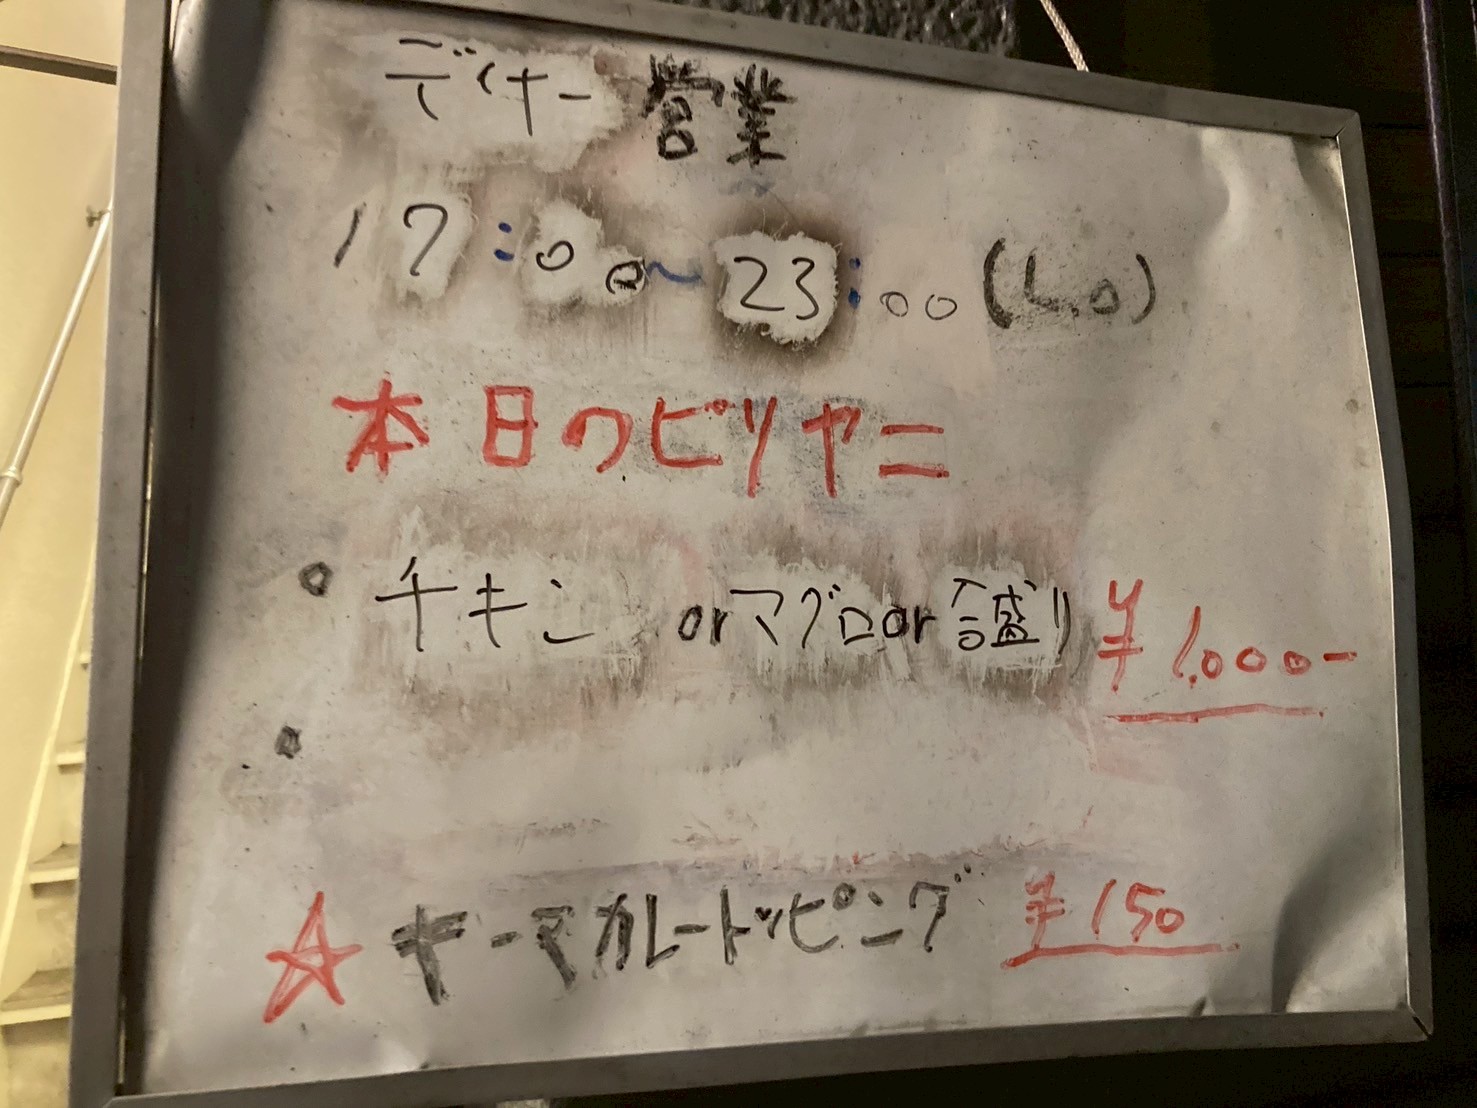 デナー営業
17:00~23:00(L.O)
本日のビリヤニ
・チキン orマグロor合盛り ¥1,000-
・
☆キーマカレートッピング ¥150